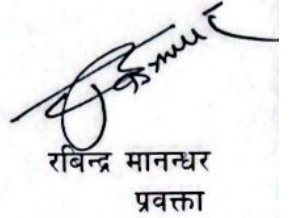 रविन्द्र मानन्धर
प्रवक्ता